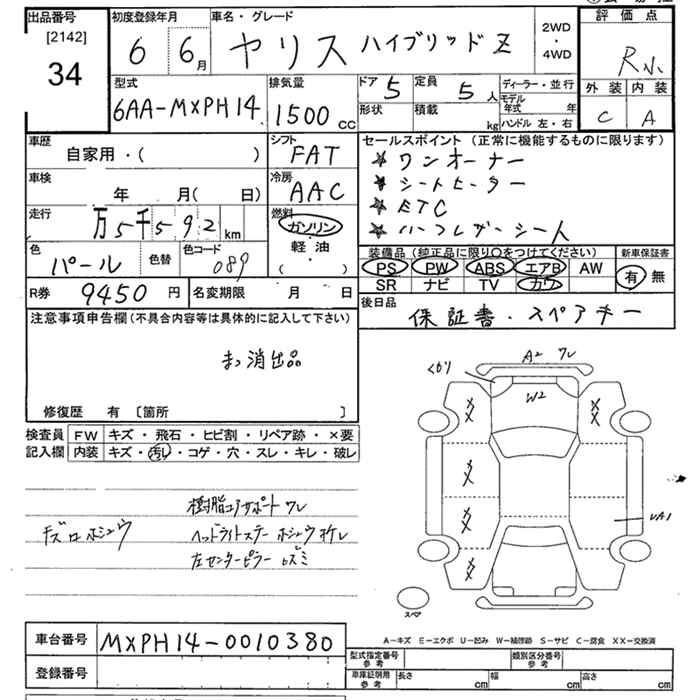 出品番号
[2142]
34
初度登録年月
6 6月
車名・グレード
ヤリス ハイブリッドZ
2WD
・
4WD
評価点
R小
外装 内装
C A
型式
6AA-MXPH14
排気量
1500 CC
ドア 5
定員 5 人
ディーラー・並行
モデル年式 年
形状
積載 kg
ハンドル 左・右
車歴
自家用・( )
シフト
FAT
車検
年 月( 日)
冷房
AAC
走行
万5千592 km
燃料
ガソリン
・
軽・油
( )
色
パール
色替
色コード
089
R券 9450 円
名変期限 月 日
セールスポイント (正常に機能するものに限ります)
★ ワンオーナー
★ シートヒーター
★ ETC
★ ハーフレザーシート
装備品 (純正品に限り○をつけてください)
PS PW ABS エアB AW
SR ナビ TV カワ
新車保証書
有 無
後日品
保証書・スペアキー
注意事項申告欄 (不具合内容等は具体的に記入して下さい)
まっ消出品
修復歴 有 [箇所 ]
検査員記入欄
FW キズ・飛石・ヒビ割・リペア跡・×要
内装 キズ・汚し・コゲ・穴・スレ・キレ・破レ
樹脂コアサポート ワレ
キズ ロ ホシュウ
ヘッドライトステー ホシュウ オレ
左センターピラー ヒズミ
くもり
A2 ワレ
W2
XX
XX
XX
XX
XX
UA1
スペア
A-キズ E-エクボ U-凹み W-補修跡 S-サビ C-腐食 XX-交換済
車台番号 MXPH14-0010380
登録番号
型式指定番号 参考
類別区分番号 参考
車庫証明用 参考
長さ cm
幅 cm
高さ cm